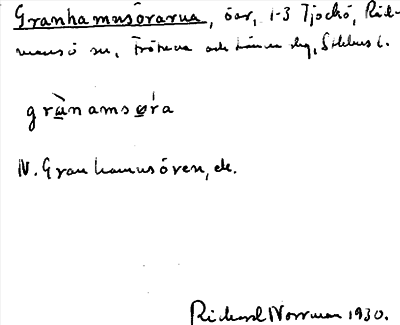 Granhamusörarna, öar, 1-3 Tjockö, Räd-
mansö sn, Frötuna och Länna skg, Sthlms l.
grànamsøra
N. Granhamusören, etc.
Richard Norrman 1930.